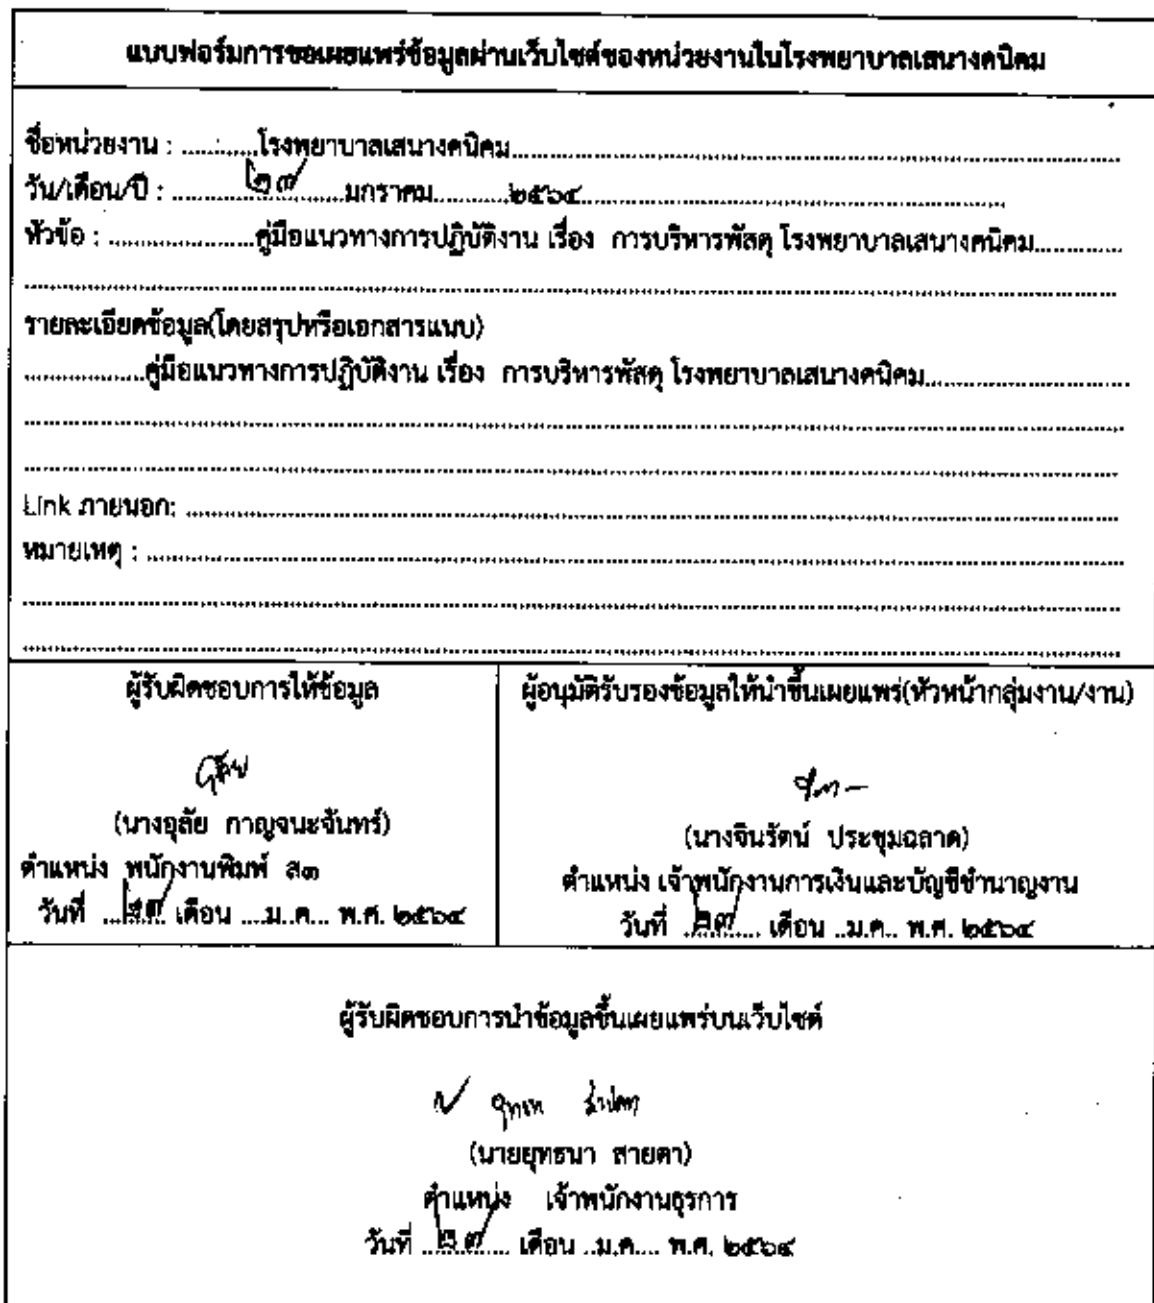 แบบฟอร์มการขอเผยแพร่ข้อมูลผ่านเว็บไซต์ของหน่วยงานในโรงพยาบาลเสนางคนิคม
ชื่อหน่วยงาน : ............โรงพยาบาลเสนางคนิคม............
วัน/เดือน/ปี : ............๒๗............มกราคม............๒๕๖๔............
หัวข้อ : ............คู่มือแนวทางการปฏิบัติงาน เรื่อง การบริหารพัสดุ โรงพยาบาลเสนางคนิคม............
รายละเอียดข้อมูล(โดยสรุปหรือเอกสารแนบ)
............คู่มือแนวทางการปฏิบัติงาน เรื่อง การบริหารพัสดุ โรงพยาบาลเสนางคนิคม............
Link ภายนอก: ............
หมายเหตุ : ............
ผู้รับผิดชอบการให้ข้อมูล
(นางอุลัย กาญจนะจันทร์)
ตำแหน่ง พนักงานพิมพ์ ส๓
วันที่ ....๒๗.... เดือน ....ม..ค... พ.ศ. ๒๕๖๔
ผู้อนุมัติรับรองข้อมูลให้นำขึ้นเผยแพร่(หัวหน้ากลุ่มงาน/งาน)
(นางจินรัตน์ ประชุมฉลาด)
ตำแหน่ง เจ้าพนักงานการเงินและบัญชีชำนาญงาน
วันที่ ....๒๗.... เดือน ..ม.ค.. พ.ศ. ๒๕๖๔
ผู้รับผิดชอบการนำข้อมูลขึ้นเผยแพร่บนเว็บไซต์
(นายยุทธนา สายตา)
ตำแหน่ง เจ้าพนักงานธุรการ
วันที่ ....๒๗.... เดือน ..ม.ค.... พ.ศ. ๒๕๖๔